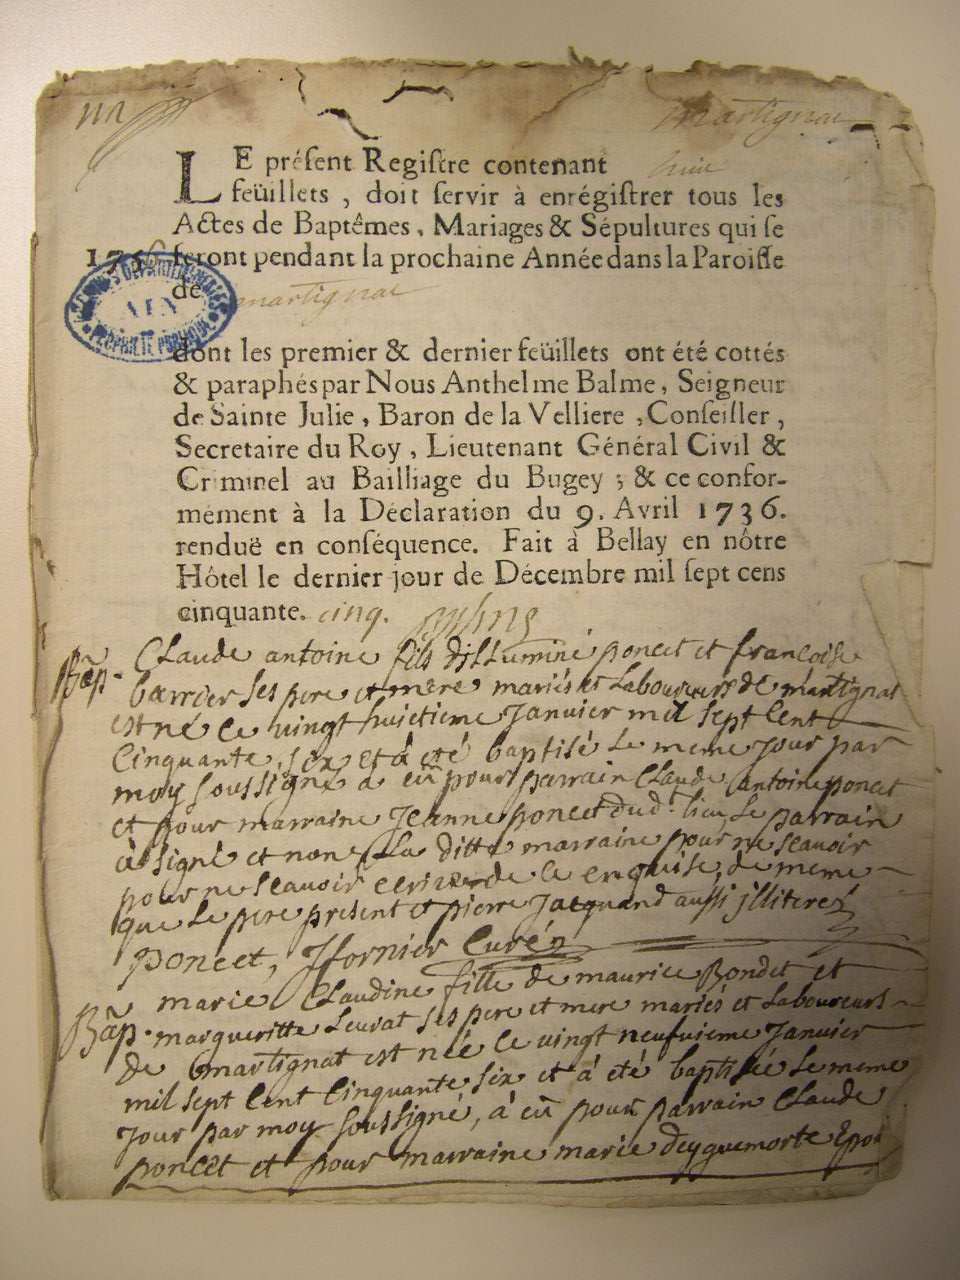 martignat
LE préſent Regiſtre contenant huit
feüillets, doit ſervir à enrégiſtrer tous les
Actes de Baptêmes, Mariages & Sépultures qui ſe
1756 ſeront pendant la prochaine Année dans la Paroiſſe
de martignat
ARCHIVES DEPARTEMENTALES
AIN
PROPRIETE PUBLIQUE
dont les premier & dernier feüillets ont été cottés
& paraphés par Nous Anthelme Balme, Seigneur
de Sainte Julie, Baron de la Velliere, Conſeiller,
Secretaire du Roy, Lieutenant Général Civil &
Criminel au Bailliage du Bugey; & ce confor-
mément à la Déclaration du 9. Avril 1736.
renduë en conſéquence. Fait à Bellay en nôtre
Hôtel le dernier jour de Décembre mil ſept cens
cinquante. cinq.
Bap. Claude antoine fils d'illuminé poncet et francoise
barrier ses pere et mere mariés et Laboureurs de martignat
est né le vingt huictieme Janvier mil sept Cent
Cinquante six et à été baptisé Le meme Jour par
moy soussigné a eû pour parrain Claude antoine poncet
et pour marraine Jeanne poncet dud. lieu Le parrain
à signé et non La ditte marraine pour ne scavoir
pour ne scavoir ecrire de ce enquise, de meme
que Le pere present et pierre Jacquand aussi jlliterez
poncet, Jfornier Curé
marie Claudine fille de maurice Bondet et
Bap. margueritte Leurat ses pere et mere mariés et Laboureurs
de martignat est née le vingt neufuieme Janvier
mil sept Cent Cinquante six et à été baptisée Le meme
Jour par moy soussigné, à eû pour parrain Claude
poncet et pour marraine marie deyguemorte